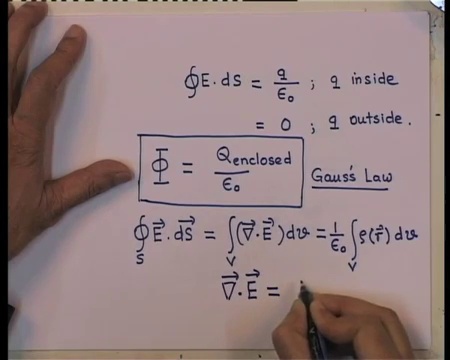 ∮E.ds = q/ε₀ ; q inside
= 0 ; q outside.
Φ = Qenclosed/ε₀ Gauss's Law
∮_S E⃗.ds⃗ = ∫_V (∇⃗.E⃗)dv = 1/ε₀ ∫_V ρ(r⃗)dv
∇⃗.E⃗ =